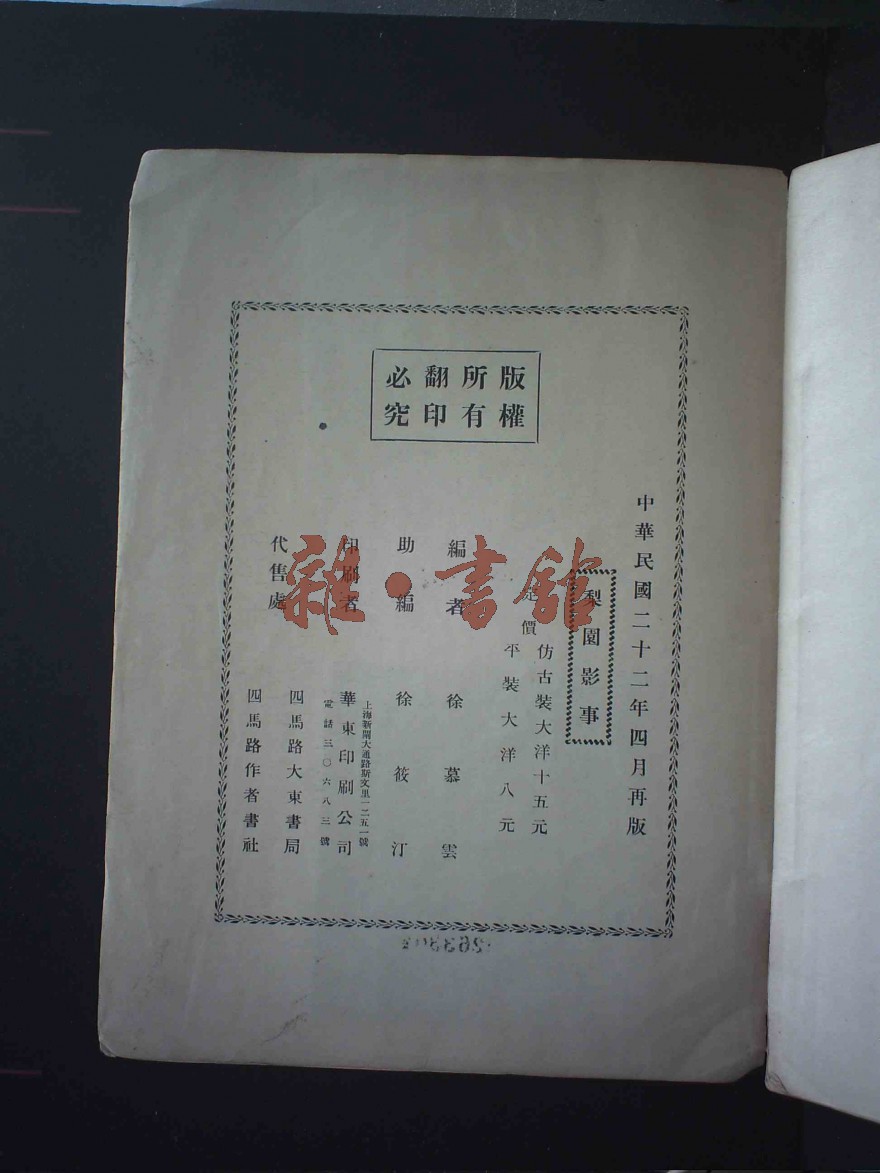 版權
所有
翻印
必究
中華民國二十二年四月再版
梨園影事
定價
仿古裝大洋十五元
平裝大洋八元
編者 徐慕雲
助編 徐筱汀
印刷者
上海新閘大通路斯文里一二五一號
華東印刷公司
電話三〇六八三號
代售處
四馬路大東書局
四馬路作者書社
雜·書館